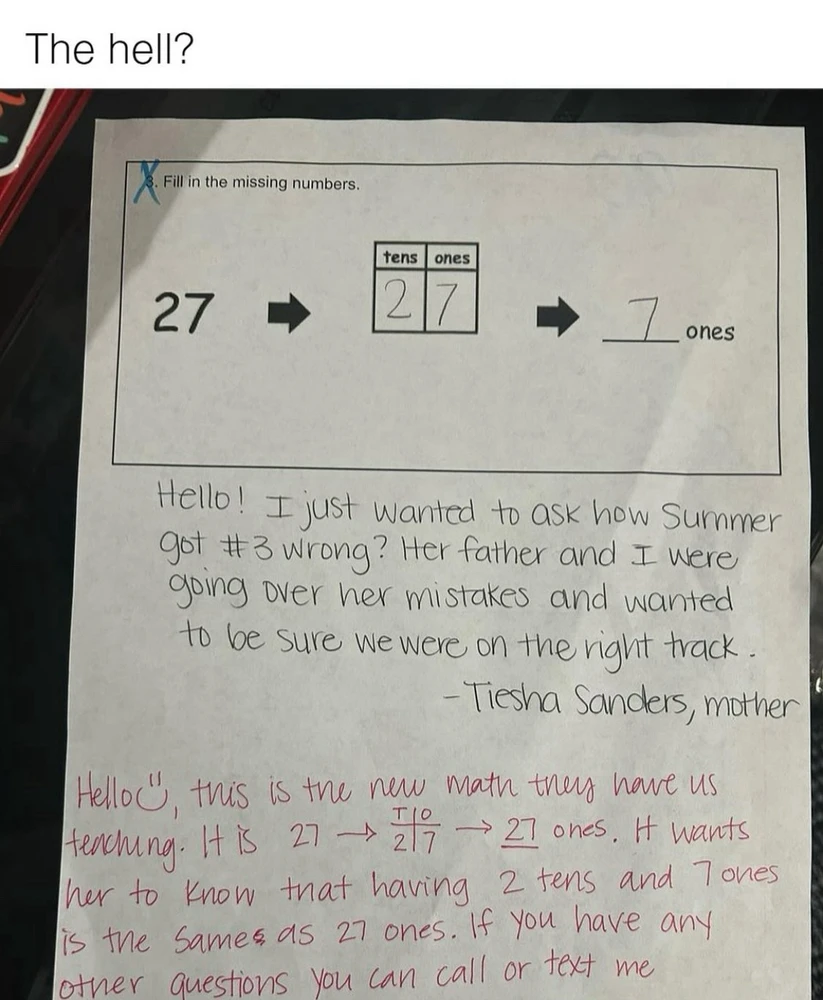 The hell?
3. Fill in the missing numbers.
tens ones
27 → 2 7 → 7 ones
Hello! I just wanted to ask how Summer
got #3 wrong? Her father and I were
going over her mistakes and wanted
to be sure we were on the right track.
-Tiesha Sanders, mother
Hello, this is the new math they have us
T|O
teaching. It is 27 → 2|7 → 27 ones. It wants
her to know that having 2 tens and 7 ones
is the same as 27 ones. If you have any
other questions you can call or text me